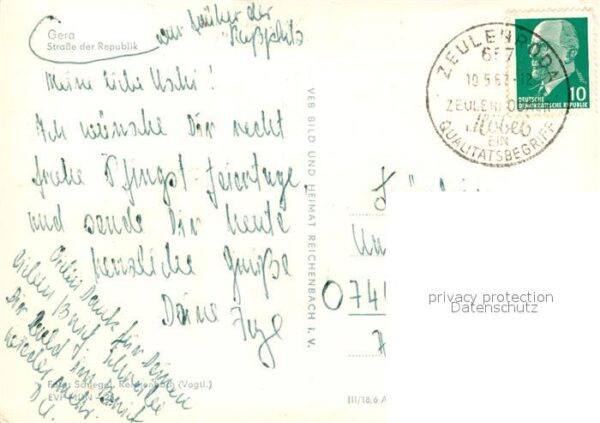 Gera
Straße der Republik
war früher der
Meine liebe Uschi!
Ich wünsche Dir recht
frohe Pfingst-feiertage,
und sende Dir heute
herzliche Grüße
Deine Inge
Vielen Dank für Deinen
lieben Brief. Schreibe
Dir bald
D. U.
Foto: Schlegel, Reichenbach (Vogtl.)
VEB BILD UND HEIMAT REICHENBACH i. V.
III/18/6 A
ZEULENRODA
657
10.5.67-12
ZEULENRODA
Möbel
EIN
QUALITÄTSBEGRIFF
DEUTSCHE
DEMOKRATISCHE REPUBLIK
10
Frl.
074
privacy protection
Datenschutz